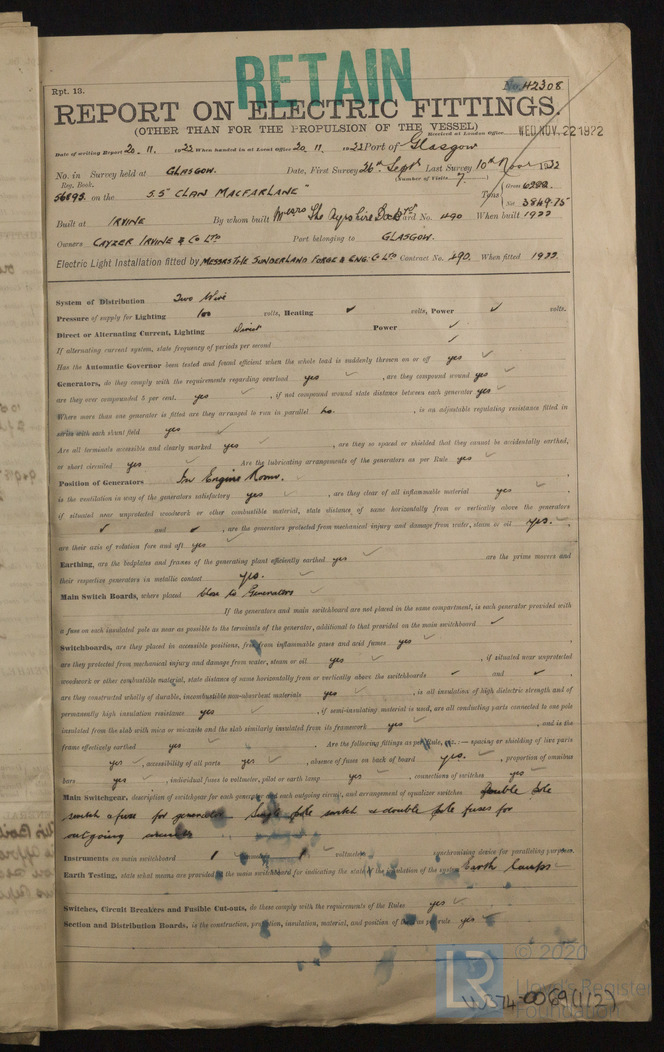 RETAIN
Rpt. 13.
No. 42308
REPORT ON ELECTRIC FITTINGS.
(OTHER THAN FOR THE PROPULSION OF THE VESSEL)
Received at London Office WED. NOV. 22 1922
Date of writing Report 20. 11. 1922 When handed in at Local Office 20. 11. 1922 Port of Glasgow
No. in Survey held at GLASGOW. Date, First Survey 26th Septr Last Survey 10th Novr 1922
Reg. Book. (Number of Visits 7.)
56893. on the S.S "CLAN MACFARLANE" Tons Gross 6222. Net 3849.75
Built at IRVINE By whom built Messrs The Ayrshire Dockyd Yard No. 490 When built 1922
Owners CAYZER IRVINE & CO LTD Port belonging to GLASGOW.
Electric Light Installation fitted by MESSRS THE SUNDERLAND FORGE & ENG. Co LTD Contract No. 490. When fitted 1922.
System of Distribution Two Wire
Pressure of supply for Lighting 100 volts, Heating ✓ volts, Power ✓ volts.
Direct or Alternating Current, Lighting Direct Power ✓
If alternating current system, state frequency of periods per second ✓
Has the Automatic Governor been tested and found efficient when the whole load is suddenly thrown on or off yes ✓
Generators, do they comply with the requirements regarding overload yes ✓, are they compound wound yes ✓
are they over compounded 5 per cent. yes ✓, if not compound wound state distance between each generator yes ✓
Where more than one generator is fitted are they arranged to run in parallel no. , is an adjustable regulating resistance fitted in
series with each shunt field yes ✓
Are all terminals accessible and clearly marked yes ✓, are they so spaced or shielded that they cannot be accidentally earthed,
or short circuited yes ✓ Are the lubricating arrangements of the generators as per Rule yes ✓
Position of Generators In Engine Room.
is the ventilation in way of the generators satisfactory yes ✓, are they clear of all inflammable material yes ✓,
if situated near unprotected woodwork or other combustible material, state distance of same horizontally from or vertically above the generators
✓ and ✓, are the generators protected from mechanical injury and damage from water, steam or oil yes. ✓,
are their axis of rotation fore and aft yes ✓
Earthing, are the bedplates and frames of the generating plant efficiently earthed yes ✓ are the prime movers and
their respective generators in metallic contact yes. ✓
Main Switch Boards, where placed Close to Generators ✓
If the generators and main switchboard are not placed in the same compartment, is each generator provided with
a fuse on each insulated pole as near as possible to the terminals of the generator, additional to that provided on the main switchboard ✓
Switchboards, are they placed in accessible positions, free from inflammable gases and acid fumes yes ✓,
are they protected from mechanical injury and damage from water, steam or oil yes ✓, if situated near unprotected
woodwork or other combustible material, state distance of same horizontally from or vertically above the switchboards ✓ and ✓,
are they constructed wholly of durable, incombustible non-absorbent materials yes ✓, is all insulation of high dielectric strength and of
permanently high insulation resistance yes ✓, if semi-insulating material is used, are all conducting parts connected to one pole
insulated from the slab with mica or micanite and the slab similarly insulated from its framework yes ✓, and is the
frame effectively earthed yes ✓. Are the following fittings as per Rule, viz.:— spacing or shielding of live parts
yes ✓, accessibility of all parts yes ✓, absence of fuses on back of board yes. ✓, proportion of omnibus
bars yes ✓, individual fuses to voltmeter, pilot or earth lamp yes ✓, connections of switches yes ✓
Main Switchgear, description of switchgear for each generator and each outgoing circuit, and arrangement of equaliser switches Double pole
switch & fuse for generator. Single pole switch & double pole fuses for
outgoing circuits
Instruments on main switchboard 1 1 voltmeters synchronising device for paralleling purposes.
Earth Testing, state what means are provided on the main switchboard for indicating the state of the insulation of the system Earth lamps
Switches, Circuit Breakers and Fusible Cut-outs, do these comply with the requirements of the Rules yes ✓
Section and Distribution Boards, is the construction, protection, insulation, material, and position of these as per rule yes ✓
© 2020
LR
Lloyd's Register
Foundation
W374-0069(1/2)